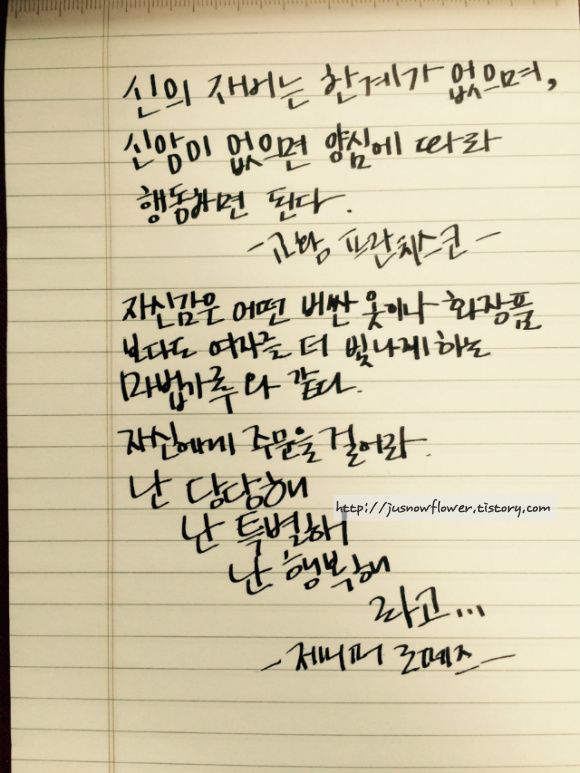 신의 자비는 한계가 없으며,
신앙이 없으면 양심에 따라
행동하면 된다.
-교황 프란치스코-
자신감은 어떤 비싼 옷이나 화장품
보다도 여자를 더 빛나게 하는
마법가루와 같다.
자신에게 주문을 걸어라.
난 당당해
http://jusnowflower.tistory.com
난 특별해
난 행복해
라고...
-제니퍼 로페즈-